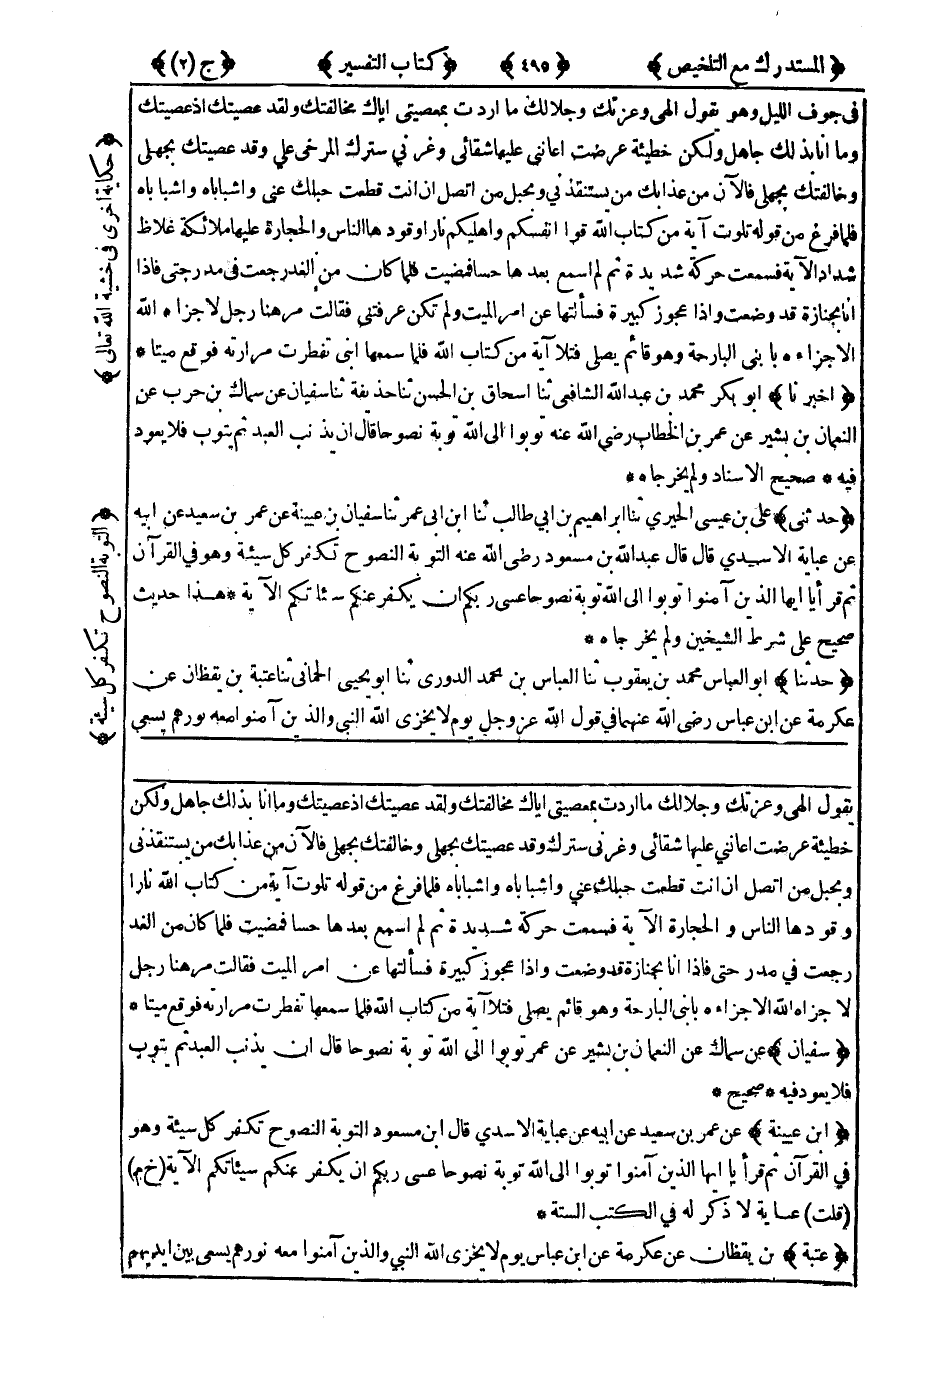 ﴿المستدرك مع التلخيص﴾ ﴿٤٩٥﴾ ﴿كتاب التفسير﴾ ﴿ج (٢)﴾
فى جوف الليل وهو يقول الهى وعزتك وجلالك ما اردت بمعصيتى اياك مخالفتك ولقد عصيتك اذ عصيتك
وما انا بذلك جاهل ولكن خطيئة عرضت اعانني عليها شقائى وغرني سترك المرخى علي وقد عصيتك بجهلى
وخالفتك بجهلى فالآن من عذابك من يستنقذني وبحبل من اتصل ان انت قطعت حبلك عنى واشباباه واشباباه
فلما فرغ من قوله تلوت آية من كتاب الله قوا انفسكم واهليكم نارا وقودها الناس والحجارة عليها ملائكة غلاظ
شداد الآية فسمعت حركة شديدة ثم لم اسمع بعدها حسا فمضيت فلما كان من الغد رجعت فى مدرجتى فاذا
انا بجنازة قد وضعت واذا عجوز كبيرة فسألتها عن امر الميت ولم تكن عرفتني فقالت مر هنا رجل لا جزاه الله
الا جزاءه بابنى البارحة وهو قائم يصلى فتلا آية من كتاب الله فلما سمعها ابنى تفطرت مرارته فوقع ميتا *
﴿اخبرنا﴾ ابو بكر محمد بن عبدالله الشافعى ثنا اسحاق بن الحسن ثنا حذيفة ثنا سفيان عن سماك بن حرب عن
النعمان بن بشير عن عمر بن الخطاب رضى الله عنه توبوا الى الله توبة نصوحا قال ان يذنب العبد ثم يتوب فلا يعود
فيه * صحيح الاسناد ولم يخرجاه *
﴿حدثنى﴾ على بن عيسى الحيري ثنا ابراهيم بن ابي طالب ثنا ابن ابى عمر ثنا سفيان بن عيينة عن عمر بن سعيد عن ابيه
عن عباية الاسدي قال قال عبدالله بن مسعود رضى الله عنه التوبة النصوح تكفر كل سيئة وهو في القرآن
ثم قرأ يا ايها الذين آمنوا توبوا الى الله توبة نصوحا عسى ربكم ان يكفر عنكم سيئاتكم الآية * هذا حديث
صحيح على شرط الشيخين ولم يخرجاه *
﴿حدثنا﴾ ابو العباس محمد بن يعقوب ثنا العباس بن محمد الدورى ثنا ابو يحيى الحمانى ثنا عتبة بن يقظان عن
عكرمة عن ابن عباس رضى الله عنهما في قول الله عز وجل يوم لا يخزى الله النبي والذين آمنوا معه نورهم يسعى
﴿حكاية اخرى فى خشية الله تعالى﴾
﴿التوبة النصوح تكفر كل سيئة﴾
يقول الهى وعزتك وجلالك ما اردت بمعصيتى اياك مخالفتك ولقد عصيتك اذ عصيتك وما انا بذالك جاهل ولكن
خطيئة عرضت اعانني عليها شقائى وغرنى سترك وقد عصيتك بجهلى وخالفتك بجهلى فالآن من عذابك من يستنقذنى
وبحبل من اتصل ان انت قطعت حبلك عني واشباباه واشباباه فلما فرغ من قوله تلوت آية من كتاب الله نارا
وقودها الناس والحجارة الآية فسمعت حركة شديدة ثم لم اسمع بعدها حسا فمضيت فلما كان من الغد
رجعت في مدرجتى فاذا انا بجنازة قد وضعت واذا عجوز كبيرة فسألتها عن امر الميت فقالت مر هنا رجل
لا جزاه الله الا جزاءه بابنى البارحة وهو قائم يصلى فتلا آية من كتاب الله فلما سمعها تفطرت مرارته فوقع ميتا *
﴿سفيان﴾ عن سماك عن النعمان بن بشير عن عمر توبوا الى الله توبة نصوحا قال ان يذنب العبد ثم يتوب
فلا يعود فيه * صحيح *
﴿ابن عيينة﴾ عن عمر بن سعيد عن ابيه عن عباية الاسدي قال ابن مسعود التوبة النصوح تكفر كل سيئة وهو
في القرآن ثم قرأ يا ايها الذين آمنوا توبوا الى الله توبة نصوحا عسى ربكم ان يكفر عنكم سيئاتكم الآية (خ م)
(قلت) عباية لا ذكر له في الكتب الستة *
﴿عتبة﴾ بن يقظان عن عكرمة عن ابن عباس يوم لا يخزى الله النبي والذين آمنوا معه نورهم يسعى بين ايديهم